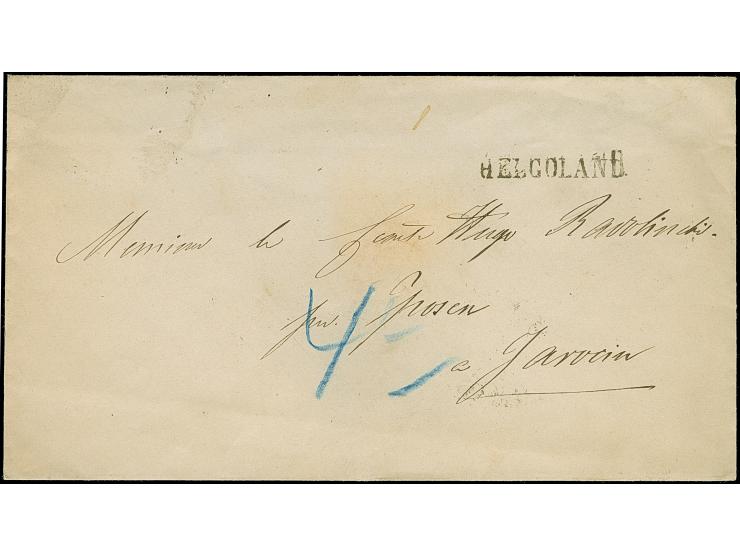 HELGOLAND
Monsieur le Comte Hugo Radolinski.
pr. Posen
a Jarocin
4